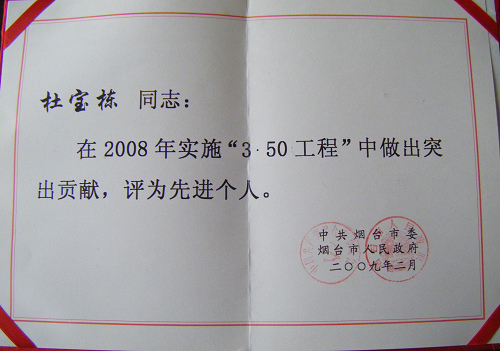 杜宝栋 同志：
在2008年实施“3·50工程”中做出突
出贡献，评为先进个人。
中共烟台市委
烟台市人民政府
二〇〇九年二月